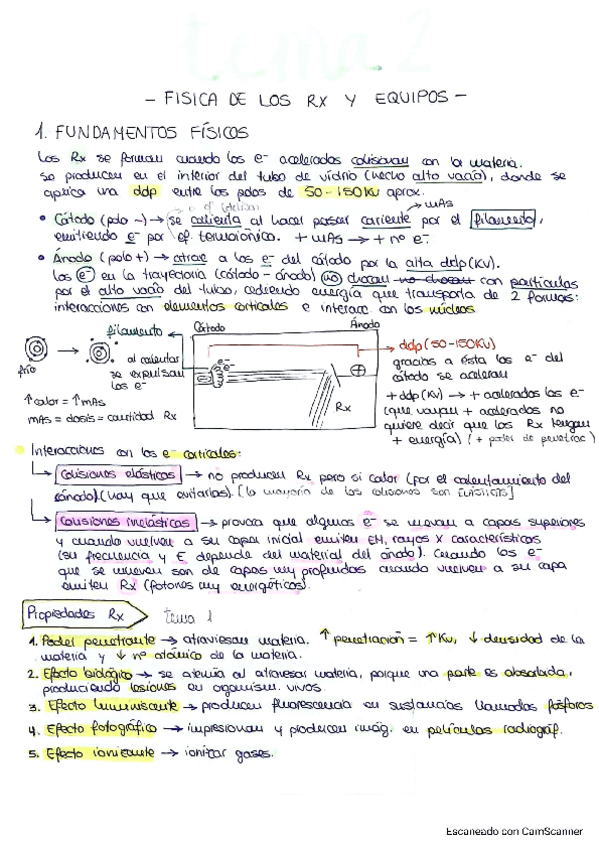 tema 2
- FISICA DE LOS RX Y EQUIPOS -
1. FUNDAMENTOS FÍSICOS
Los Rx se forman cuando los e⁻ acelerados colisionan con la materia.
Se producen en el interior del tubo de vidrio (hecho alto vacío), donde se
aplica una ddp entre los polos de 50-150Kv aprox.
→ mAs
• Cátodo (polo -) → se calienta al hacer pasar corriente por el filamento,
emitiendo e⁻ por ef. termoiónico. + mAs → + nº e⁻.
• Ánodo (polo +) → atrae a los e⁻ del cátodo por la alta ddp (KV).
Los e⁻ en la trayectoria (cátodo - ánodo) no chocan no chocan con partículas
por el alto vacío del tubo, cediendo energía que transporta de 2 formas:
interacciones con elementos corticales e interacc con los núcleos
filamento
Cátodo
Ánodo
frío
al calentar
se expulsan
los e⁻
↑calor = ↑mAs
mAs = dosis = cantidad Rx
e⁻
e⁻
+
Rx
→ ddp (50-150KV)
gracias a ésta los e⁻ del
cátodo se aceleran
+ ddp (KV) → + acelerados los e⁻
(que vayan + acelerados no
quiere decir que los Rx tengan
+ energía) (+ poder de penetrac)
• Interacciones con los e⁻ corticales:
→ Colisiones elásticas → no producen Rx pero sí calor (por el calentamiento del
ánodo) (hay que evitarlas). [la mayoría de las colisiones son]
→ Colisiones inelásticas → provoca que algunos e⁻ se muevan a capas superiores
y cuando vuelven a su capa inicial emiten EM, rayos X característicos
(su frecuencia y E depende del material del ánodo). Cuando los e⁻
que se mueven son de capas muy profundas cuando vuelven a su capa
emiten Rx (fotones muy energéticos).
Propiedades Rx tema 1
1. Poder penetrante → atraviesan materia. ↑ penetración = ↑Kv, ↓ densidad de la
materia y ↓ nº atómico de la materia.
2. Efecto biológico → se atenúa al atravesar materia, porque una parte es absorbida,
produciendo lesiones en organism. vivos.
3. Efecto luminiscente → producen fluorescencia en sustancias llamadas fósforos
4. Efecto fotográfico → impresionan y producen imág. en películas radiográf.
5. Efecto ionizante → ionizar gases.
Escaneado con CamScanner